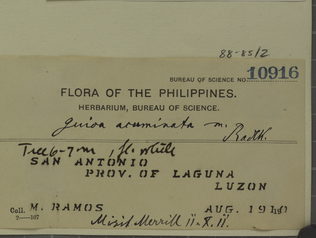 88-85/2
BUREAU OF SCIENCE NO. 10916
FLORA OF THE PHILIPPINES.
HERBARIUM, BUREAU OF SCIENCE.
Guioa acuminata
Radlk.
Tree 6-7 m, fl. white
SAN ANTONIO
PROV. OF LAGUNA
LUZON
Coll. M. RAMOS AUG. 19
2—107
Misit Merrill II. X. II.